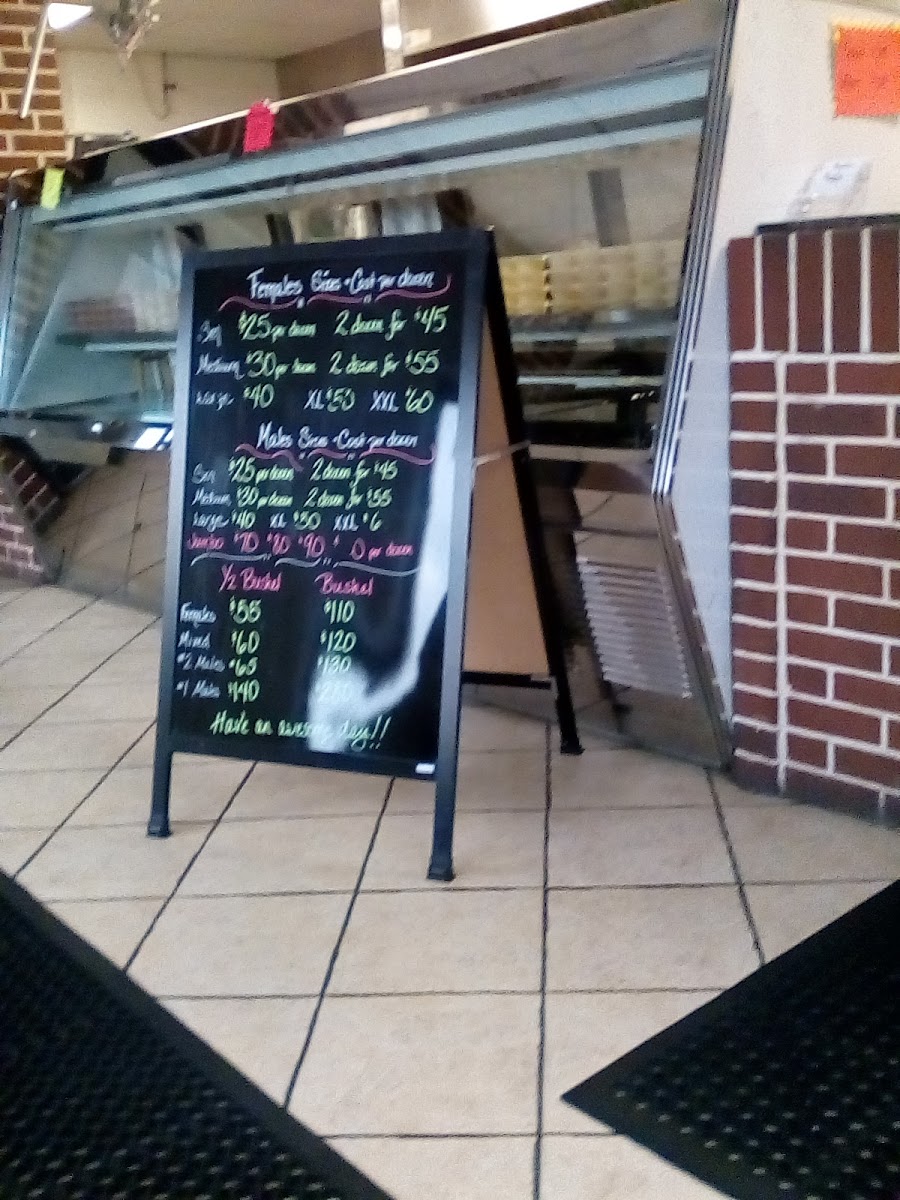 Females Sizes - Cost per dozen
$25 per dozen 2 dozen for $45
Medium $30 per dozen 2 dozen for $55
Large $40 XL $50 XXL $60
Males Sizes - Cost per dozen
$25 per dozen 2 dozen for $45
Medium $30 per dozen 2 dozen for $55
Large $40 XL $50 XXL $6
Jumbo $70 $80 $90 $ 0 per dozen
1/2 Bushel Bushel
Females $55 $110
Mixed $60 $120
#2 Males $65 $130
#1 Males $140
Have an awesome day!!